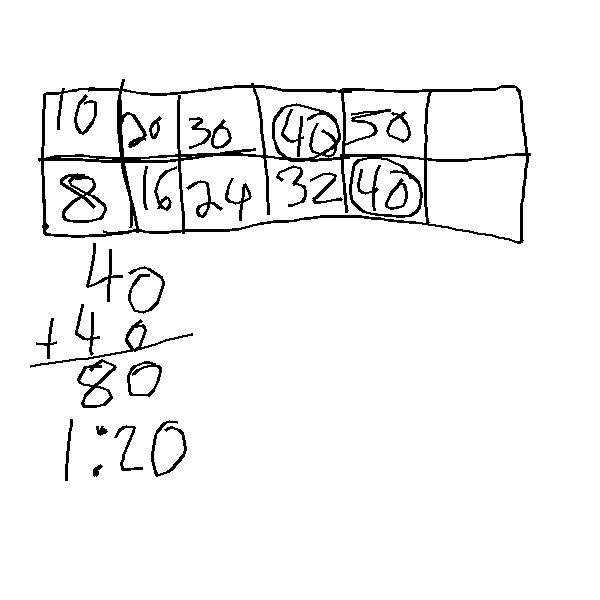 10 20 30 40 50
8 16 24 32 40
40
+40
80
1:20